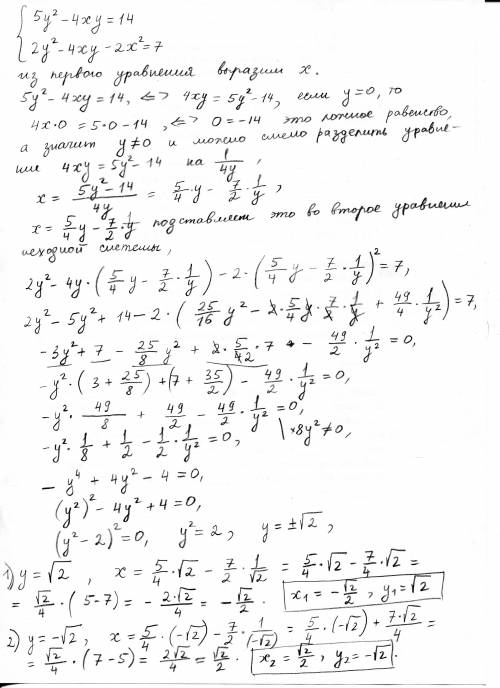 { 5y² - 4xy = 14
2y² - 4xy - 2x² = 7
из первого уравнения выразим x.
5y² - 4xy = 14, <=> 4xy = 5y² - 14, если y = 0, то
4x·0 = 5·0 - 14, <=> 0 = -14 это ложное равенство,
а значит y ≠ 0 и можно смело разделить уравне-
ние 4xy = 5y² - 14 на 1/4y,
x = (5y² - 14)/4y = 5/4·y - 7/2·1/y;
x = 5/4 y - 7/2·1/y подставляем это во второе уравнение
исходной системы,
2y² - 4y·(5/4 y - 7/2·1/y) - 2·(5/4 y - 7/2·1/y)² = 7,
2y² - 5y² + 14 - 2·(25/16 y² - 2·5/4 y·7/2·1/y + 49/4·1/y²) = 7,
-3y² + 7 - 25/8 y² + 2·5/42·7 - 49/2·1/y² = 0,
-y²·(3 + 25/8) + (7 + 35/2) - 49/2·1/y² = 0,
-y²·49/8 + 49/2 - 49/2·1/y² = 0,
-y²·1/8 + 1/2 - 1/2·1/y² = 0, | *8y² ≠ 0,
- y⁴ + 4y² - 4 = 0,
(y²)² - 4y² + 4 = 0,
(y² - 2)² = 0, y² = 2, y = ±√2,
1) y = √2, x = 5/4·√2 - 7/2·1/√2 = 5/4·√2 - 7/4·√2 =
= √2/4·(5-7) = - 2·√2/4 = - √2/2. x₁ = - √2/2, y₁ = √2
2) y = -√2, x = 5/4·(-√2) - 7/2·1/(-√2) = 5/4·(-√2) + 7·√2/4 =
= √2/4·(7-5) = 2√2/4 = √2/2. x₂ = √2/2, y₂ = -√2.